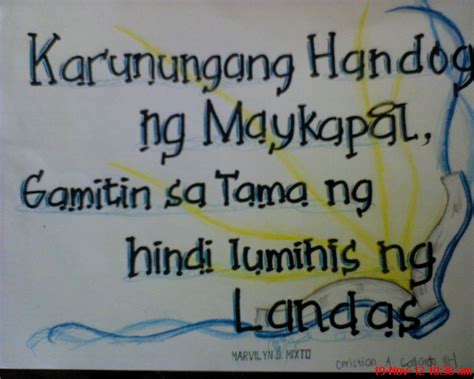 Karunungang Handog
ng Maykapal,
Gamitin sa Tama ng
hindi lumihis ng
Landas
MARVILYN D. MIXTO
Christian A.